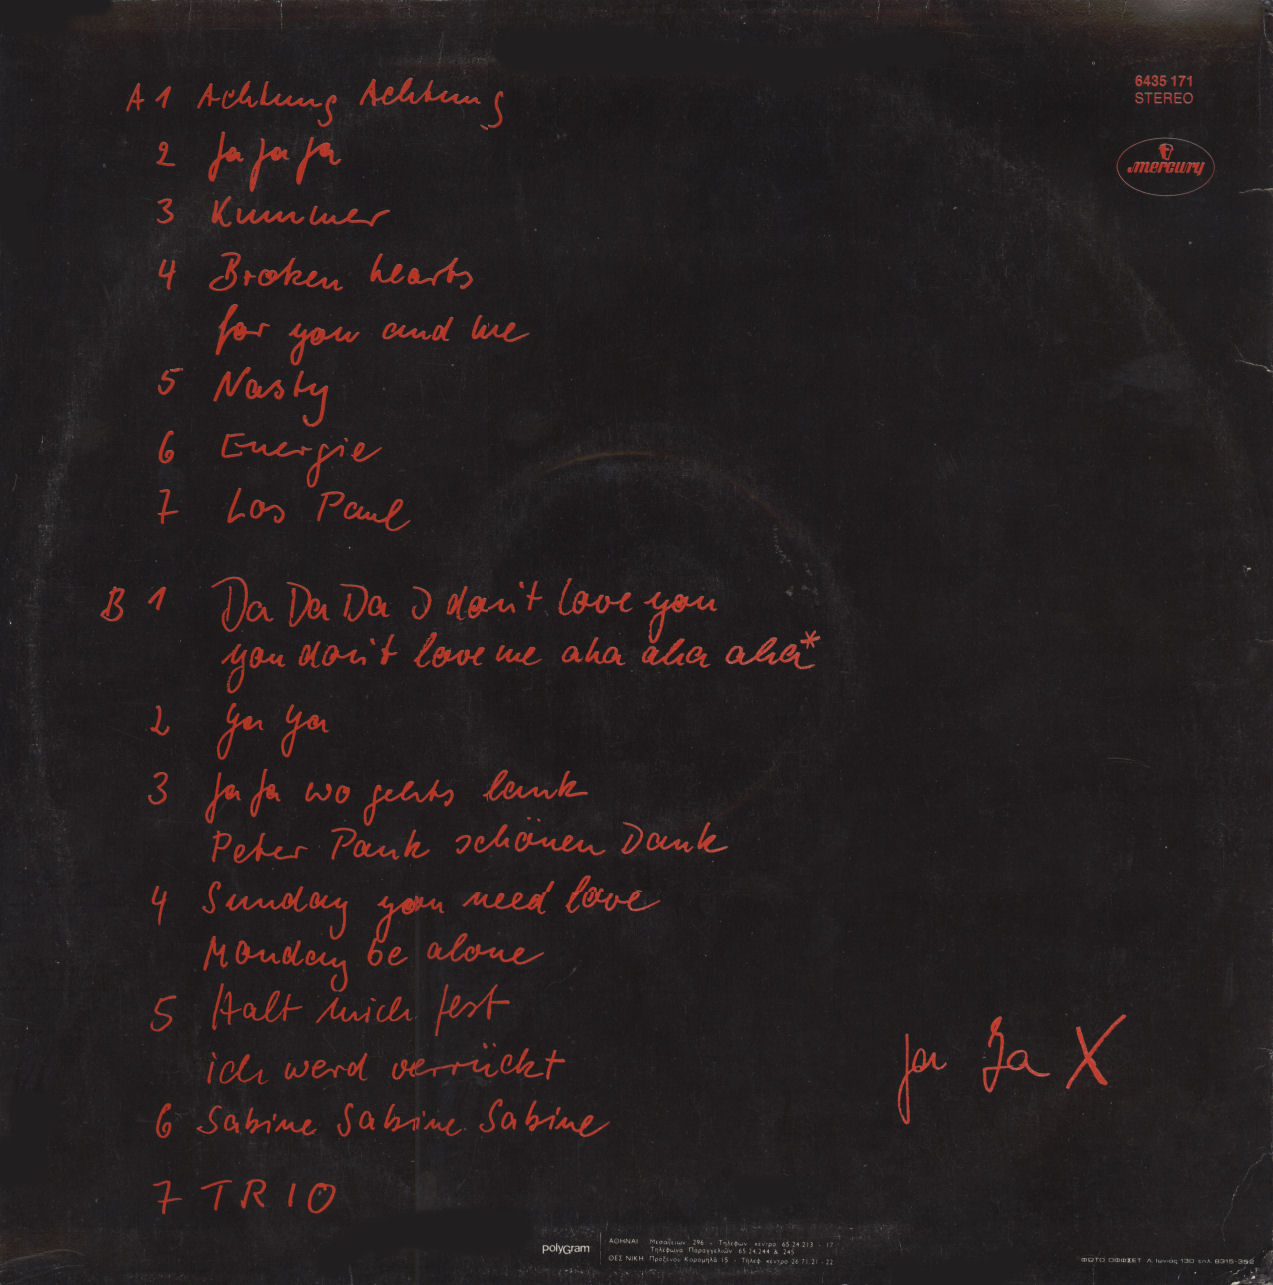 A 1 Achtung Achtung
6435 171
STEREO
mercury
2 Ja Ja Ja
3 Kummer
4 Broken hearts
for you and me
5 Nasty
6 Energie
7 Los Paul
B 1 Da Da Da I don't love you
you don't love me aha aha aha*
2 Ya Ya
3 Ja Ja wo gehts lank
Peter Pank schönen Dank
4 Sunday you need love
Monday be alone
5 Halt mich fest
ich werd verrückt
6 Sabine Sabine Sabine
7 TRIO
Ja Ja X
polyGram
ΑΘΗΝΑΙ Μεσογείων 296 - Τηλεφων κεντρο 65 24 213 - 17
Τηλέφωνα Παραγγελιών 65 24.244 & 245
ΘΕΣ ΝΙΚΗ Πρoξένου Κορομηλά 15 - Τηλεφ κεντρο 26 71/21 - 22
ΦΩΤΟ ΟΦΦΣΕΤ Λ. Ιωνίας 130 τηλ. 8315-352